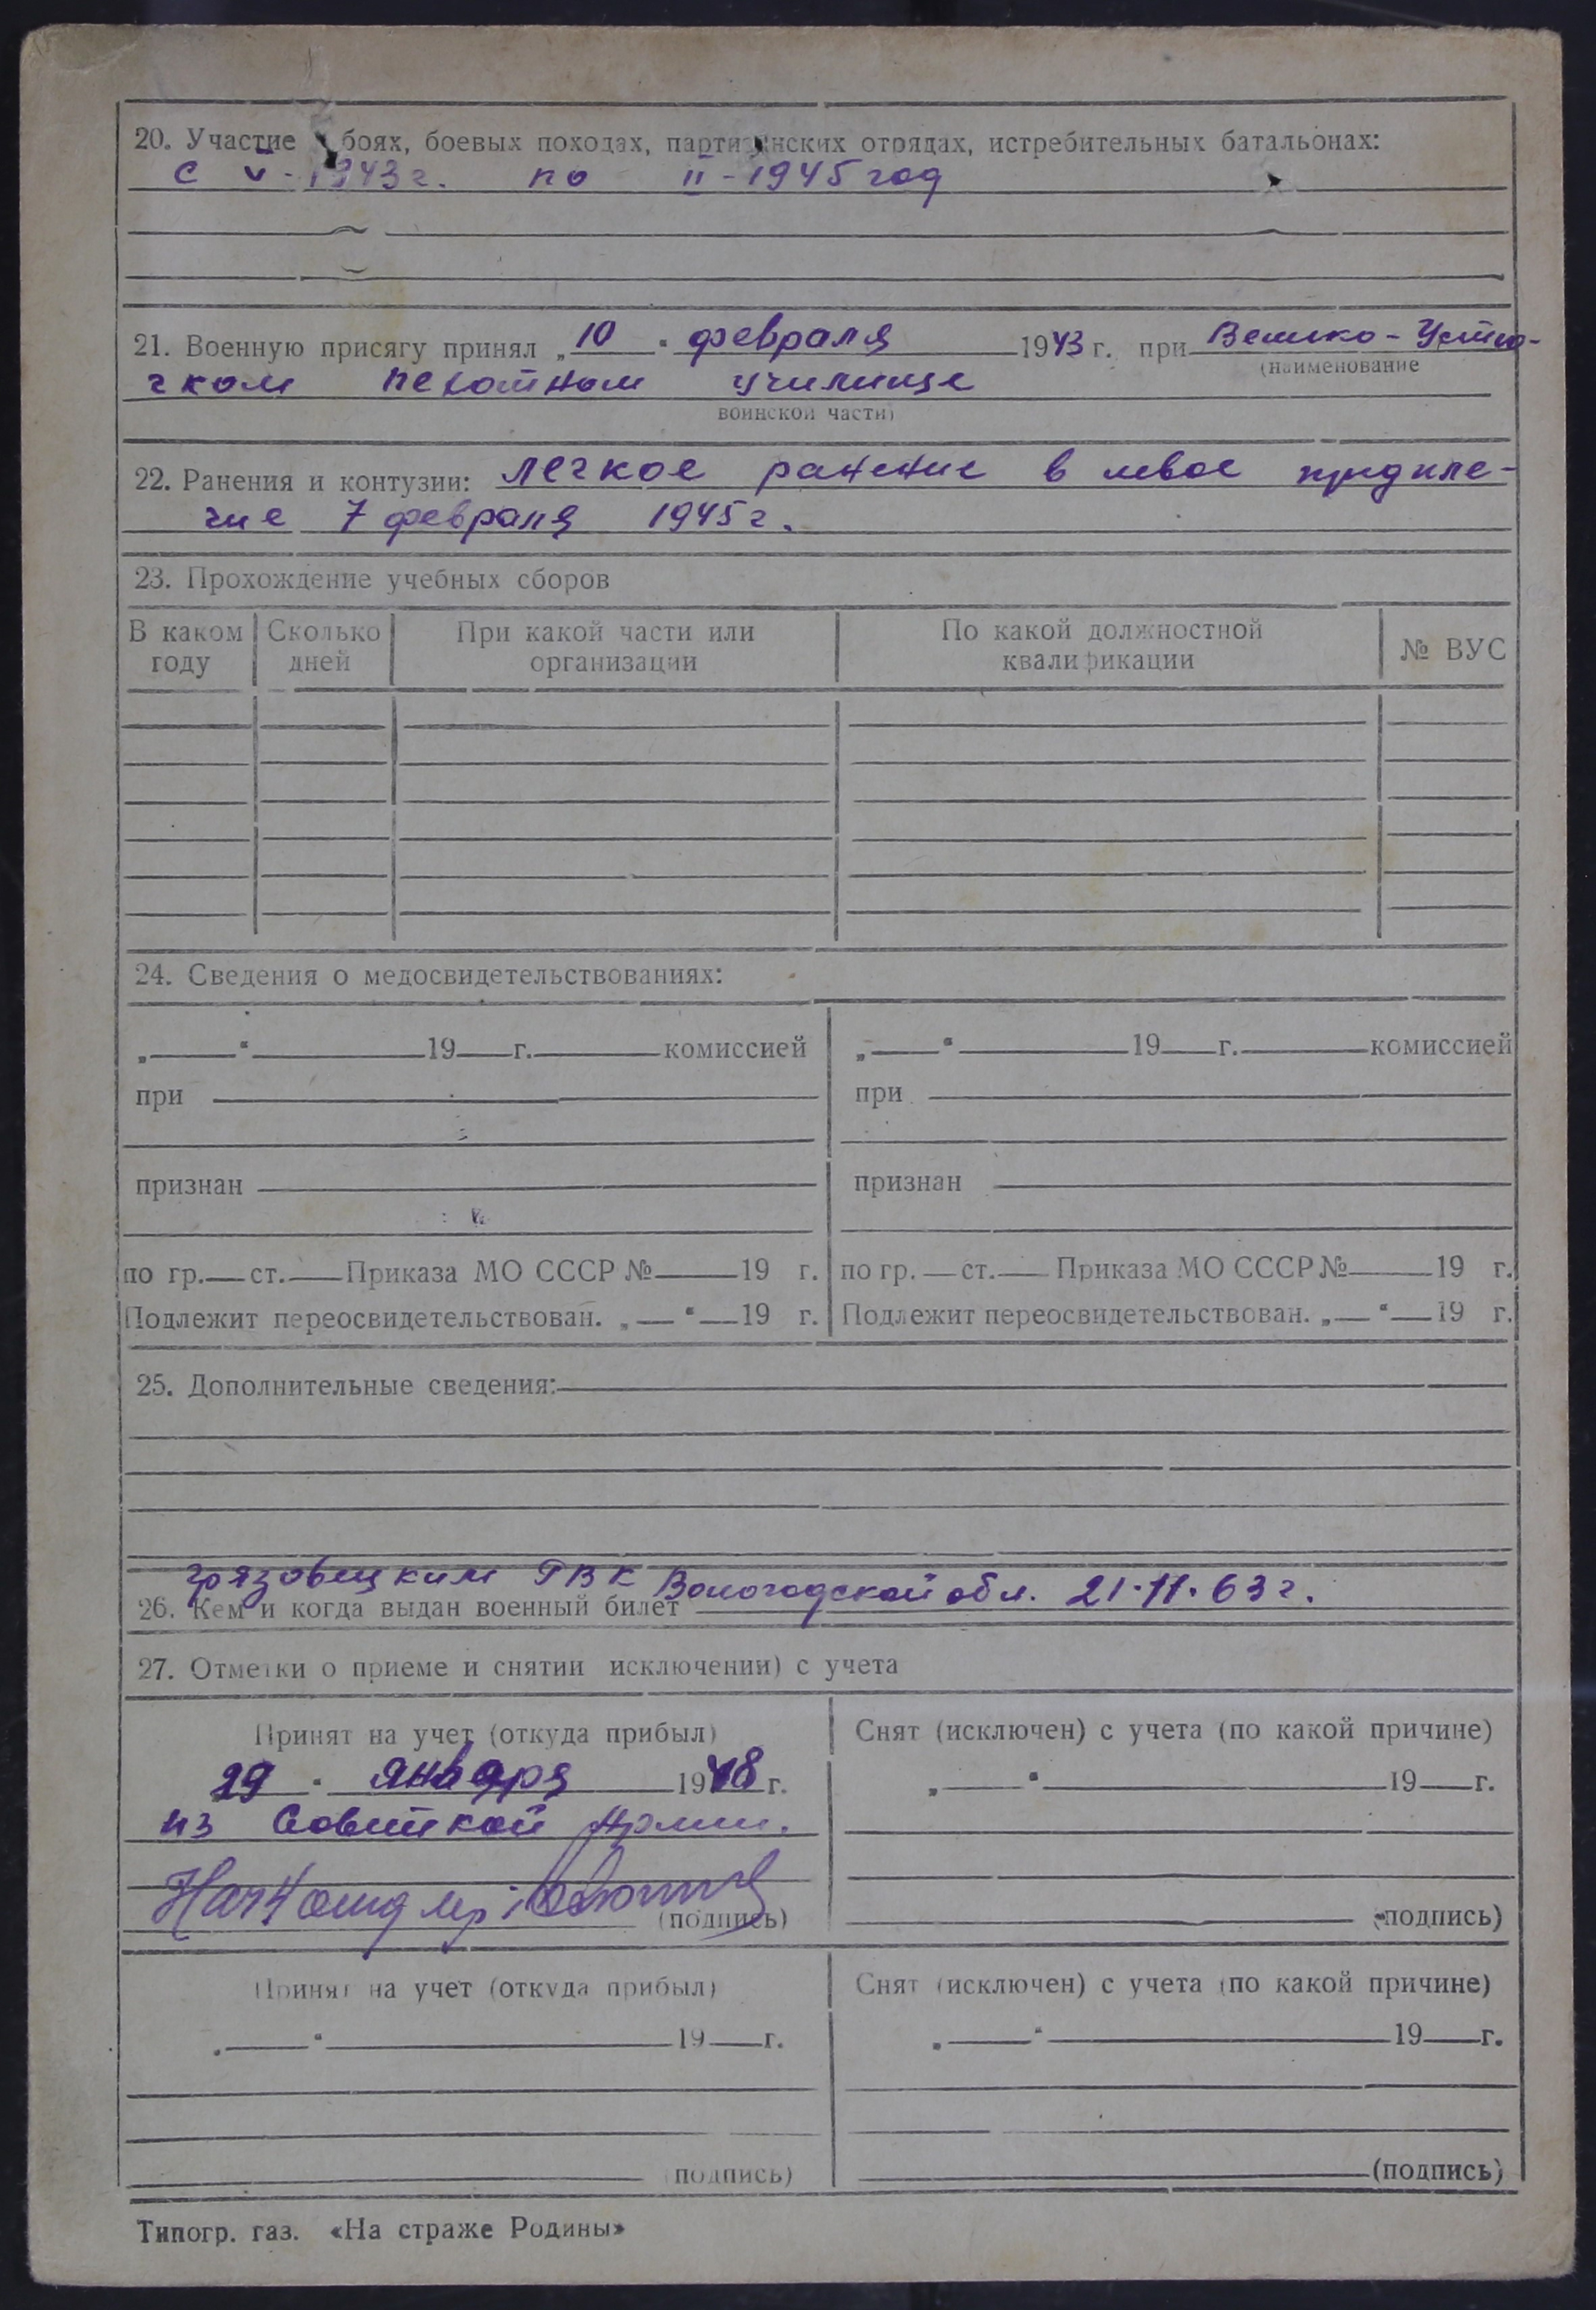 20. Участие в боях, боевых походах, партизанских отрядах, истребительных батальонах:
с V - 1943 г. по II - 1945 год
21. Военную присягу принял „10“ февраля 1943 г. при Велико-Устю-
(наименование
гском пехотном училище
воинской части)
22. Ранения и контузии: легкое ранение в левое предпле-
чие 7 февраля 1945 г.
23. Прохождение учебных сборов
В каком году | Сколько дней | При какой части или организации | По какой должностной квалификации | № ВУС
24. Сведения о медосвидетельствованиях:
„ “ 19 г. комиссией | „ “ 19 г. комиссией
при | при
признан | признан
по гр. ст. Приказа МО СССР № 19 г. | по гр. ст. Приказа МО СССР № 19 г.
Подлежит переосвидетельствован. „ “ 19 г. | Подлежит переосвидетельствован. „ “ 19 г.
25. Дополнительные сведения:
Грязовецким РВК Вологодской обл. 21.11.63 г.
26. Кем и когда выдан военный билет
27. Отметки о приеме и снятии исключении) с учета
Принят на учет (откуда прибыл) | Снят (исключен) с учета (по какой причине)
29 “ января 1948 г. | „ “ 19 г.
из Советской Армии.
(подпись) | (подпись)
Принят на учет (откуда прибыл) | Снят (исключен) с учета (по какой причине)
„ “ 19 г. | „ “ 19 г.
(подпись) | (подпись)
Типогр. газ. «На страже Родины»